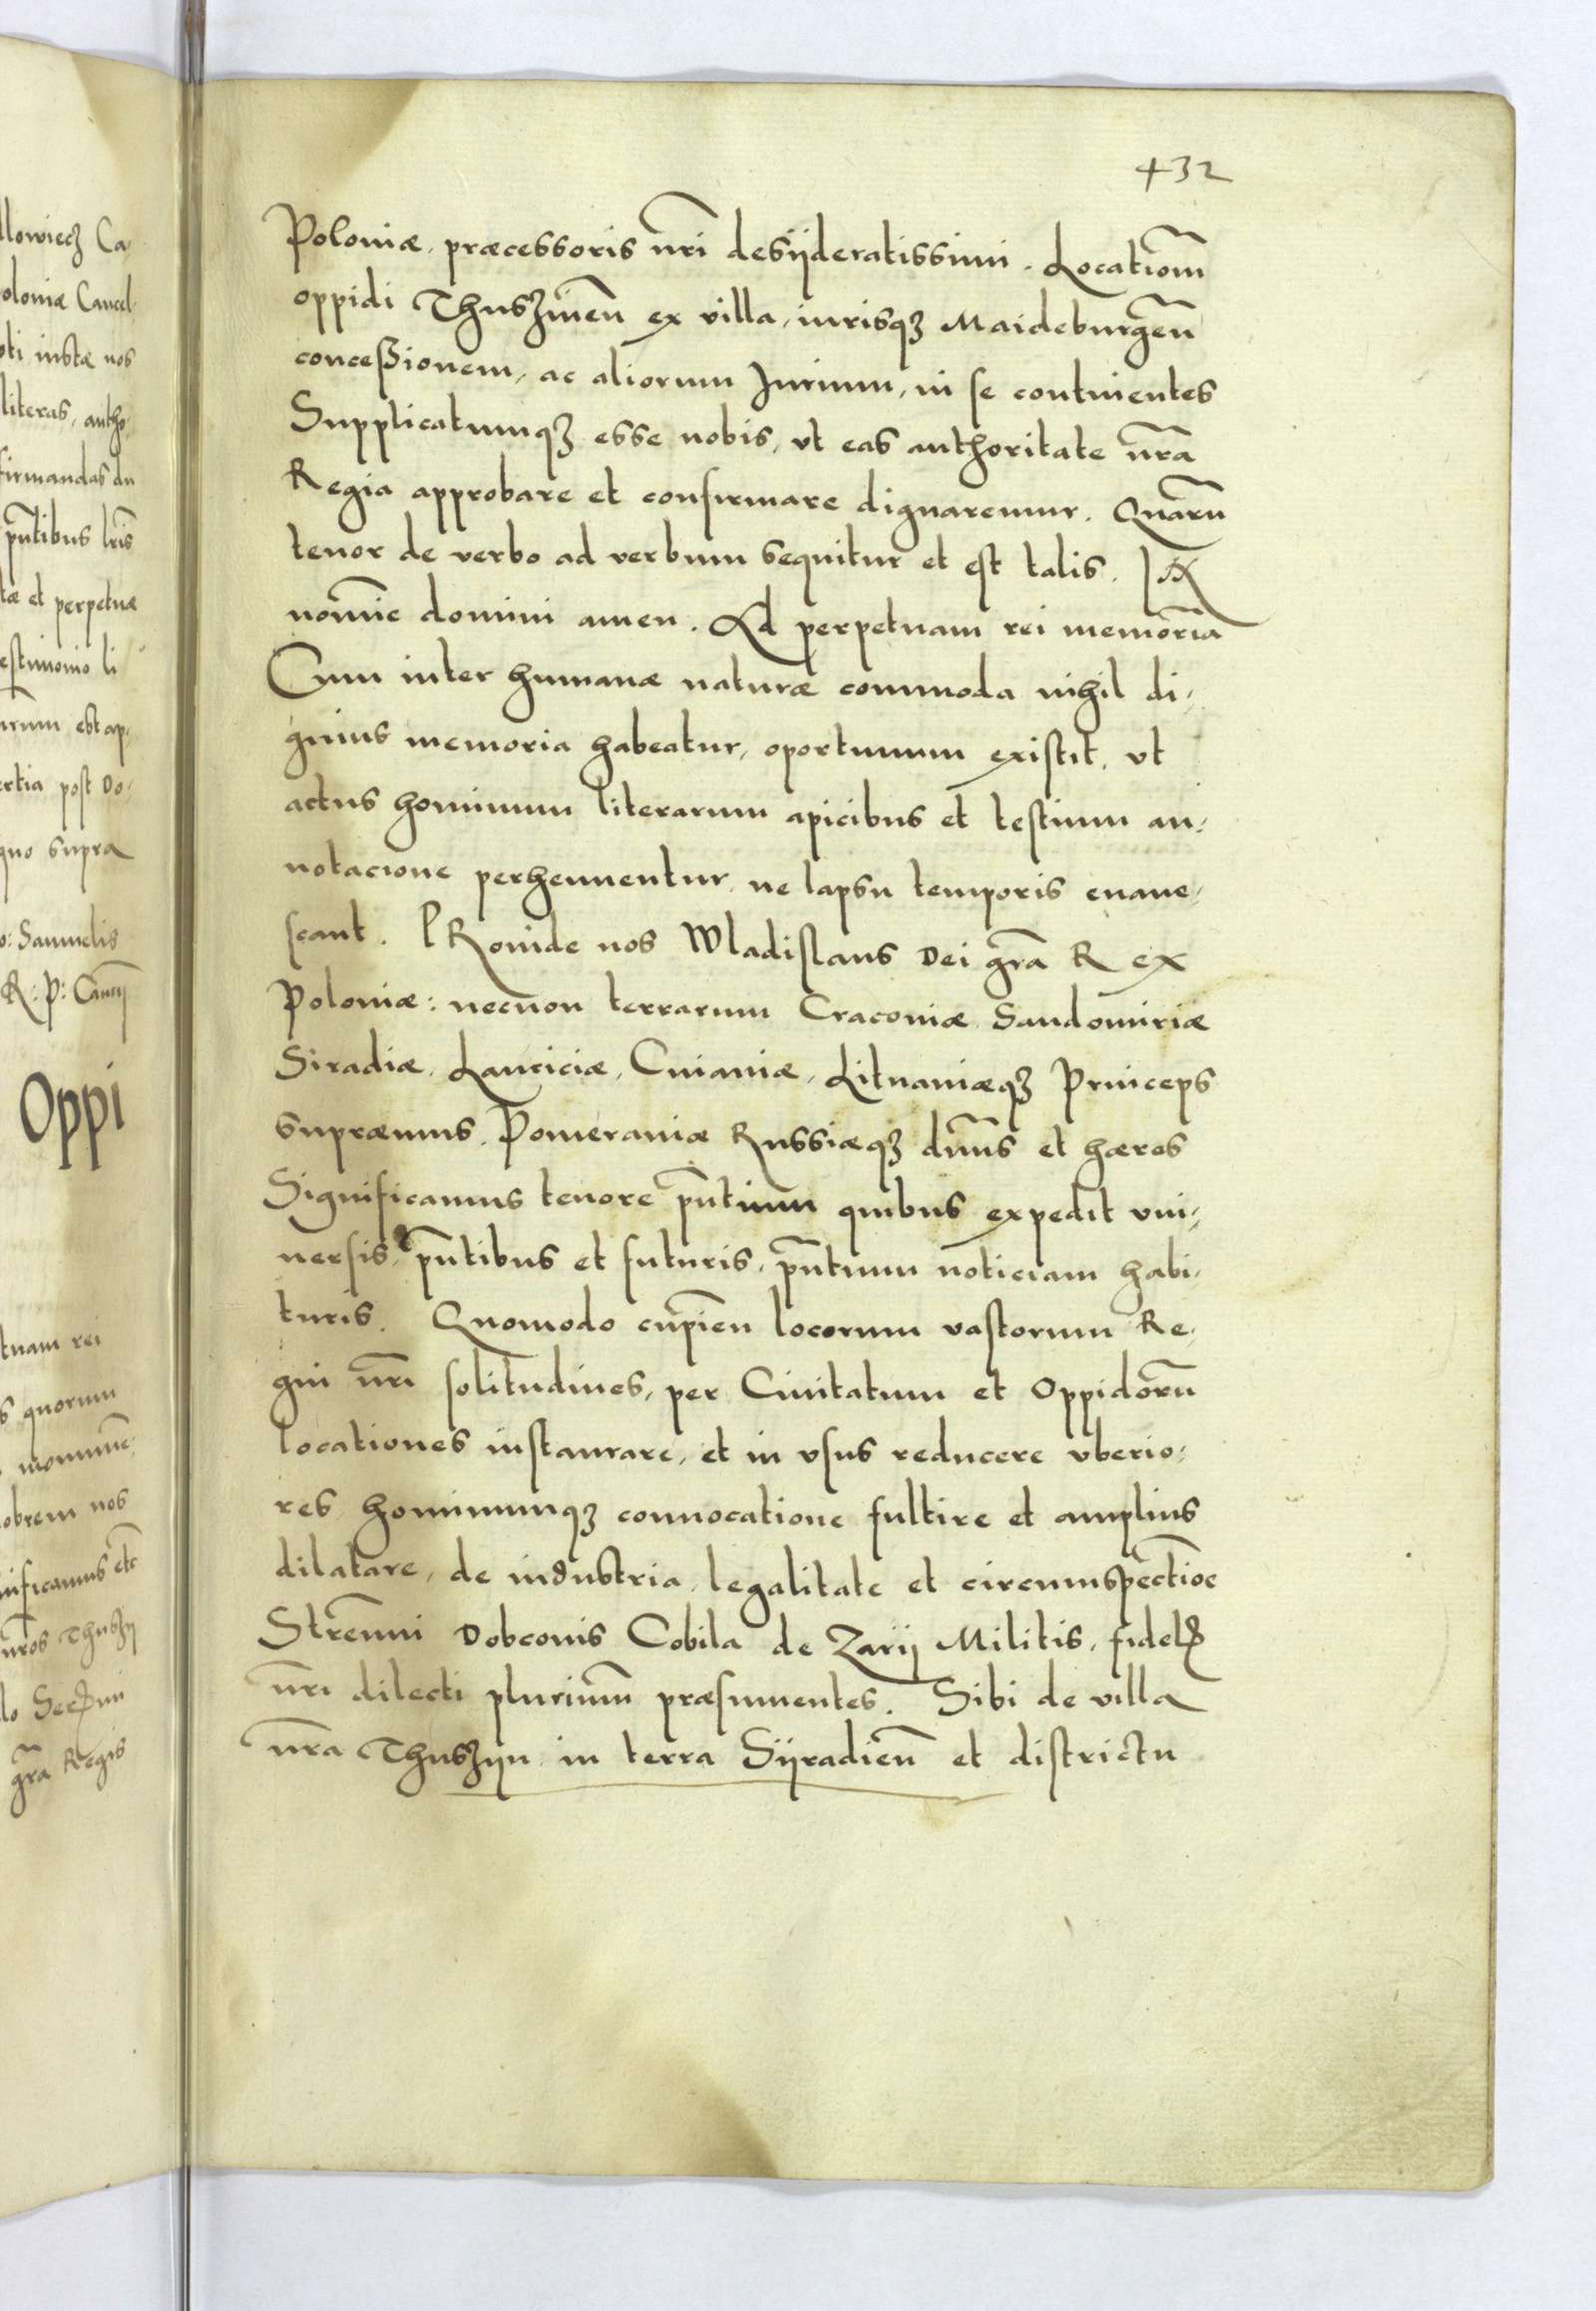 432
Poloniæ, præcessoris nr̃i desijderatissimi. Locationẽm
oppidi Thusʒineñ ex villa, iurisqꝫ Maideburgeñ
conceßionem, ac aliorum Jurium, in se continentes
Supplicatumqꝫ esse nobis, vt eas authoritate nr̃a
Regia approbare et confirmare dignaremur. Quarũ
tenor de verbo ad verbum sequitur et est talis. IN
nomĩe domini amen. Ad perpetuam rei memoriã
Cum inter humanæ naturæ commoda nihil di-
gnius memoria habeatur, oportunum existit, vt
actus hominum literarum apicibus et testium an-
notacione perhennentur, ne lapsu temporis euane-
scant. PRoinde nos Wladislaus Dei gr̃a Rex
Poloniæ: necnon terrarum Cracouiæ Sandomiriæ
Siradiæ, Lanciciæ, Cuiauiæ, Lituaniæqꝫ Princeps
supræmus, Pomeraniæ Russiæqꝫ dñus et hæres
Significamus tenore pñtium quibus expedit vni-
uersis, pñtibus et futuris, pñtium noticiam habi-
turis. Quomodo cupieñ locorum vastorum Re-
gni nr̃i solitudines, per Ciuitatum et Oppidorũ
locationes instaurare, et in vsus reducere vberio-
res hominumqꝫ conuocatione fultire et amplius
dilatare, de industria, legalitate et circumspectiõe
Strẽnui Dobconis Cobila de Zarij Militis, fidelꝭ
nr̃i dilecti plurimũ præsumentes. Sibi de villa
nr̃a Thusʒijn in terra Sijradieñ et districtu
llowiecz Ca-
oloniæ Cancel-
literas, autho-
firmandas du
pñtibus lr̃is
tæ et perpetuæ
estimonio li
urum est ap-
ertia post Do-
quo supra
o: Samuelis
R: P: Cancij
Oppi
tuam rei
s quorum
obrem nos
nificamus etc
nr̃os Thusʒij
gr̃a Regis